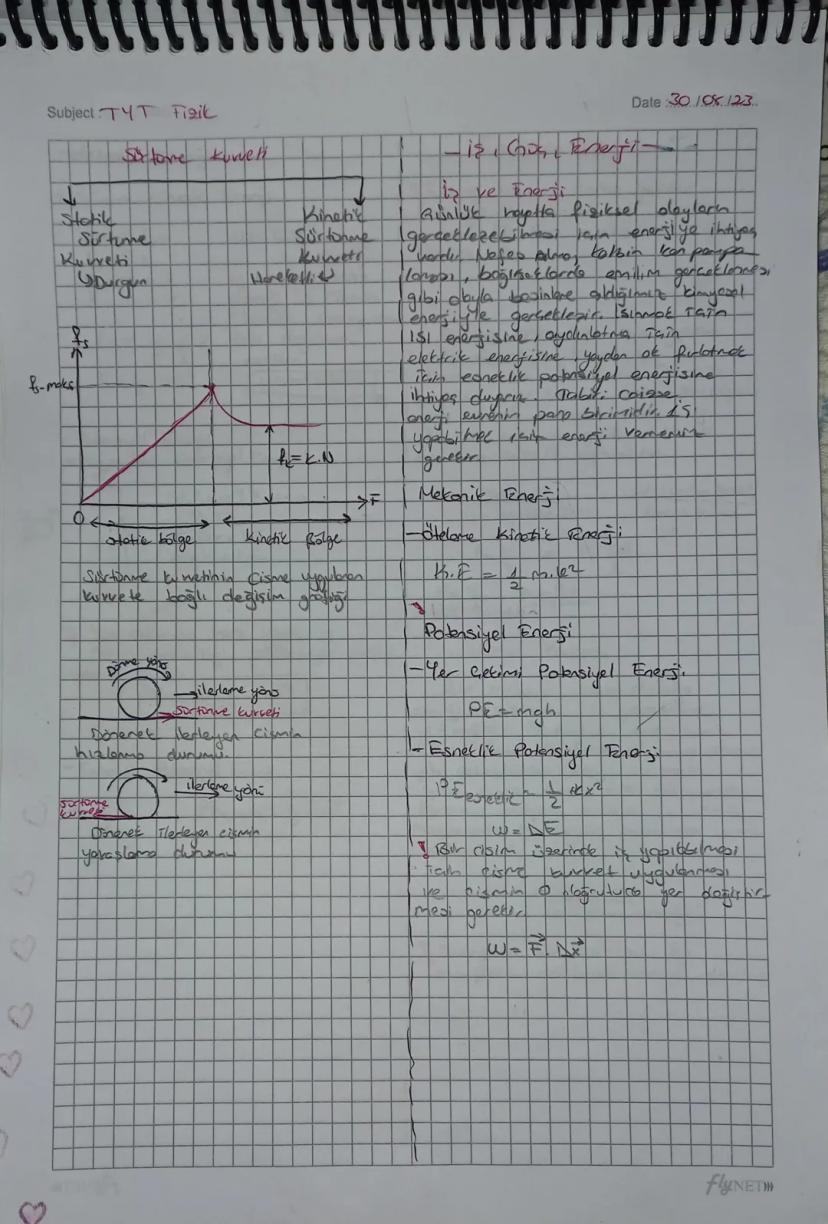 Subject : TYT Fizik
Date 30/08/23
Sürtünme kuvveti
Statik
Sürtünme
Kuvveti
↳Durgun
Kinetik
Sürtünme
Kuvveti
Hareketli
fs
fs-maks
fk=k.N
F
0
Statik bölge
Kinetik Bölge
Sürtünme kuvvetinin cisme uygulanan
kuvvete bağlı değişim grafiği
Dönme yönü
ilerleme yönü
Sürtünme kuvveti
Dönerek ilerleyen cismin
hızlanma durumu.
ilerleme yönü
Sürtünme
kuvveti
Dönerek ilerleyen cismin
yavaşlama durumu
-İş, Güç, Enerji-
İş ve Enerji
Günlük hayatta fiziksel olayların
gerçekleşebilmesi için enerjiye ihtiyaç
vardır. Nefes alma, kalbin kan pompa
laması, bağırsaklarda emilim gerçekleşmesi
gibi olayla besinlere aldığımız kimyasal
enerjiyle gerçekleşir. Isınmak için
ısı enerjisine, aydınlatma için
elektrik enerjisine, yaydan ok fırlatmak
için esneklik potansiyel enerjisine
ihtiyaç duyarız. Tabiri caizse,
enerji evrenin para birimidir. İş
yapabilmek için enerji vermemiz
gerekir
Mekanik Enerji
-Öteleme Kinetik Enerji
K.E = 1/2 m.v²
Potansiyel Enerji
-Yer Çekimi Potansiyel Enerji
PE=mgh
-Esneklik Potansiyel Enerji
PE esneklik = 1/2 kx²
W=ΔE
! Bir cisim üzerinde iş yapılabilmesi
için cisme kuvvet uygulanması
ve cismin o doğrultuda yer değiştir
mesi gerekir.
W=F.Δx
flyNET